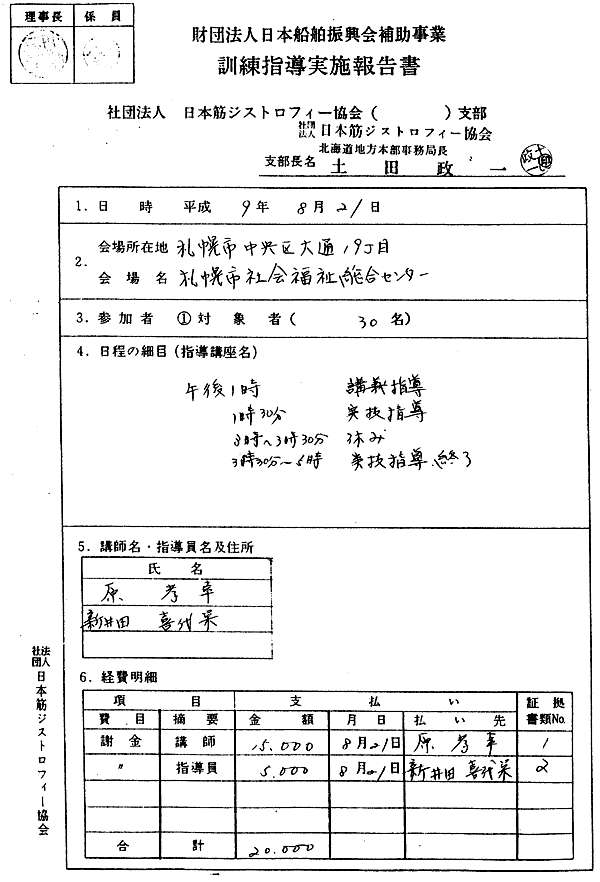 理事長 係員
財団法人日本船舶振興会補助事業
訓練指導実施報告書
社団法人 日本筋ジストロフィー協会( )支部
社団法人 日本筋ジストロフィー協会
北海道地方本部事務局長
支部長名 土田政一
1.日時 平成 9年 8月21日
2.
会場所在地 札幌市中央区大通19丁目
会場名 札幌市社会福祉総合センター
3.参加者 ①対象者( 30名)
4.日程の細目(指導講座名)
午後1時 講義指導
1時30分 実技指導
3時〜3時30分 休み
3時30分〜5時 実技指導、終了
5.講師名・指導員名及住所
氏名
原 孝幸
新井田 喜代栄
6.経費明細
項目 支払い 証拠書類No.
費目 摘要 金額 月日 払い先
謝金 講師 15.000 8月21日 原 孝幸 1
〃 指導員 5.000 8月21日 新井田 喜代栄 2
合計 20.000
社団法人 日本筋ジストロフィー協会